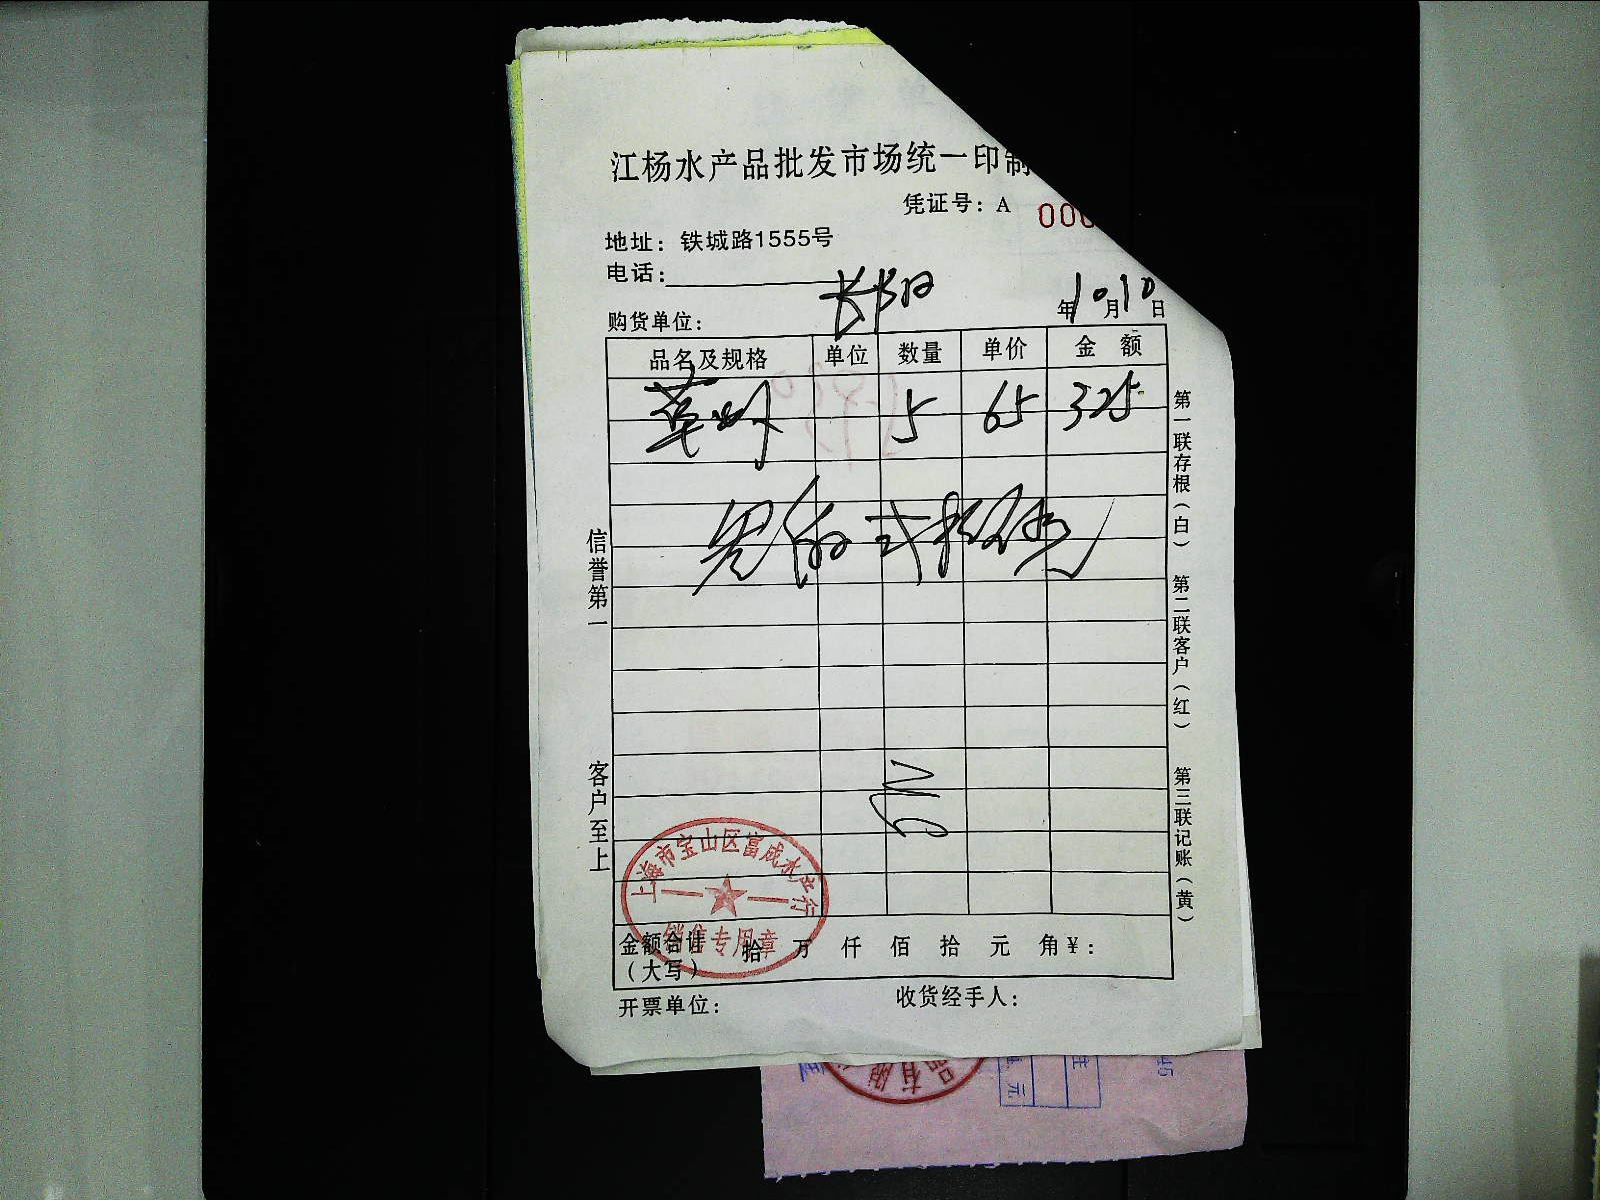 江杨水产品批发市场统一印制
凭证号：A 000
地址：铁城路1555号
电话：
购货单位：
年10月10日
品名及规格 单位 数量 单价 金额
草虾 5 65 325
叁佰贰拾伍元
信誉第一
客户至上
第一联存根（白） 第二联客户（红） 第三联记账（黄）
上海市宝山区富成水产行
销售专用章
金额合计 拾 万 仟 佰 拾 元 角￥：
（大写）
开票单位： 收货经手人：
品有限
45